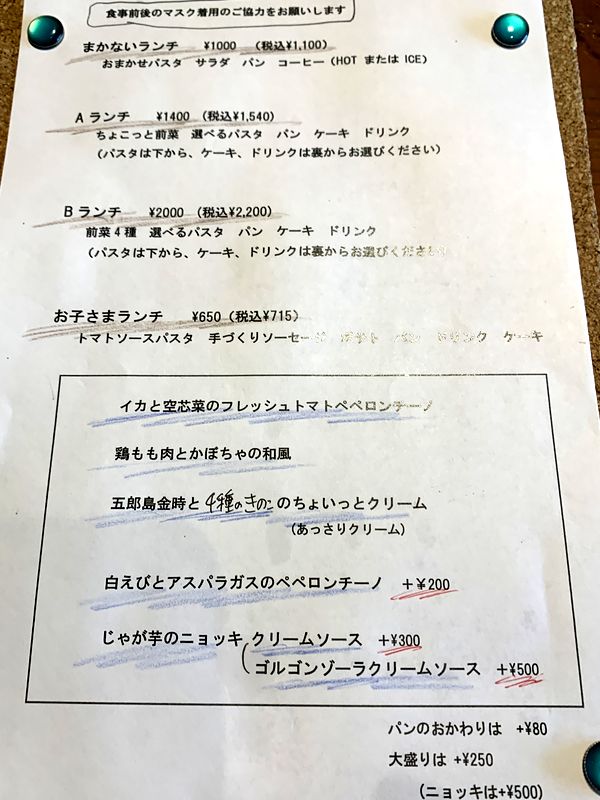 食事前後のマスク着用のご協力をお願いします
まかないランチ ¥1000 (税込¥1,100)
おまかせパスタ サラダ パン コーヒー(HOT または ICE)
A ランチ ¥1400 (税込¥1,540)
ちょこっと前菜 選べるパスタ パン ケーキ ドリンク
(パスタは下から、ケーキ、ドリンクは裏からお選びください)
B ランチ ¥2000 (税込¥2,200)
前菜4種 選べるパスタ パン ケーキ ドリンク
(パスタは下から、ケーキ、ドリンクは裏からお選びください)
お子さまランチ ¥650 (税込¥715)
トマトソースパスタ 手づくりソーセージ ポテト パン ドリンク ケーキ
イカと空芯菜のフレッシュトマトペペロンチーノ
鶏もも肉とかぼちゃの和風
五郎島金時と4種のきのこのちょいっとクリーム
(あっさりクリーム)
白えびとアスパラガスのペペロンチーノ +¥200
じゃが芋のニョッキ クリームソース +¥300
ゴルゴンゾーラクリームソース +¥500
パンのおかわりは +¥80
大盛りは +¥250
(ニョッキは+¥500)